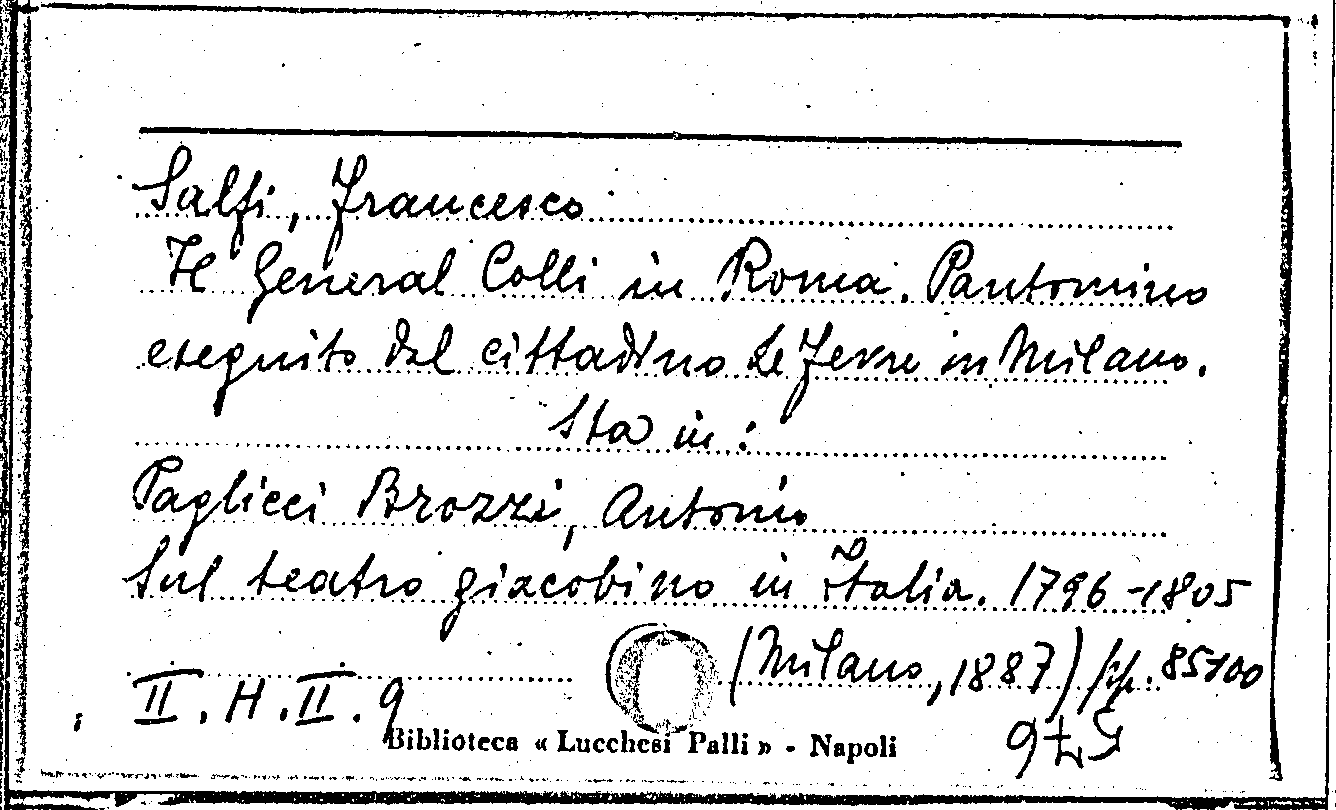 Salfi, Francesco
Il General Colli in Roma. Pantomimo
eseguito dal cittadino Le Fevre in Milano.
Sta in:
Paglicci Brozzi, Antonio
Sul teatro giacobino in Italia. 1796-1805
(Milano, 1887) pp. 85-100
II. H. II. 9
Biblioteca « Lucchesi Palli » - Napoli